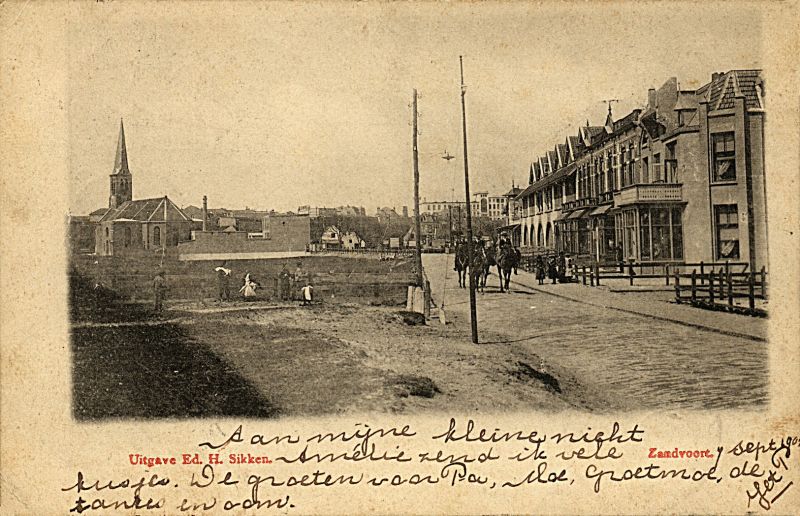 Aan mijne kleine nicht
Uitgave Ed. H. Sikken. Amélie zend ik vele Zandvoort. 7 Sept 190
kusjes. De groeten voor Pa, Moe, Grootmoe, de
tantes en oom. Jet